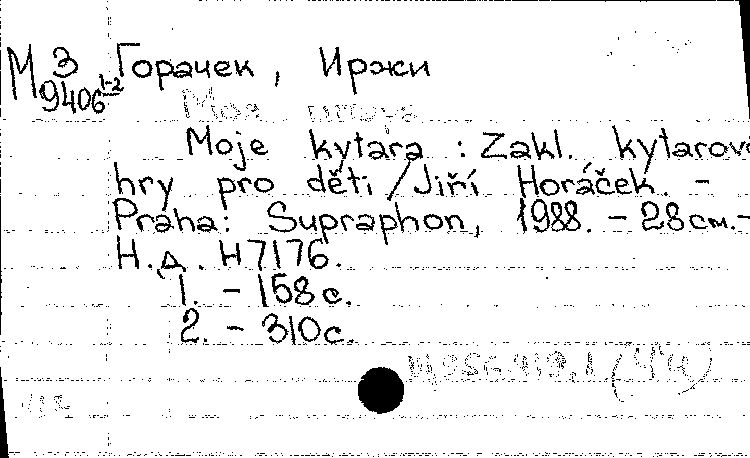 М З Горачек, Иржи
9406 1-2
Моя
Moje kytara : Zákl. kytarové
hry pro děti / Jiří Horáček. -
Praha: Supraphon, 1988. - 28 см. -
Н.д. H7176.
1. - 158 с.
2. - 310 с.